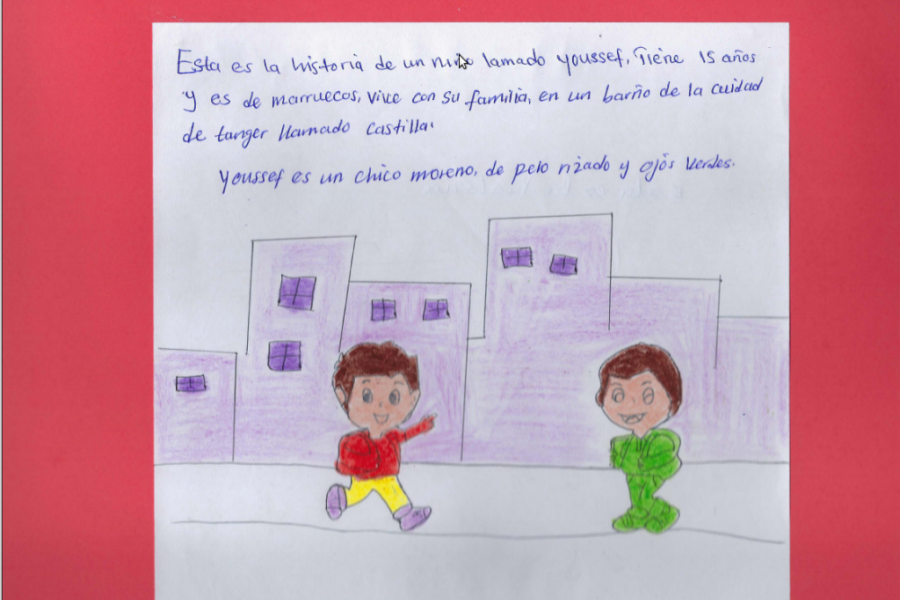 Esta es la historia de un niño lamado youssef, Tiene 15 años
y es de marruecos, vive con su familia, en un barrio de la cuidad
de tanger llamado castilla.
youssef es un chico moreno, de pelo rizado y ojos verdes.